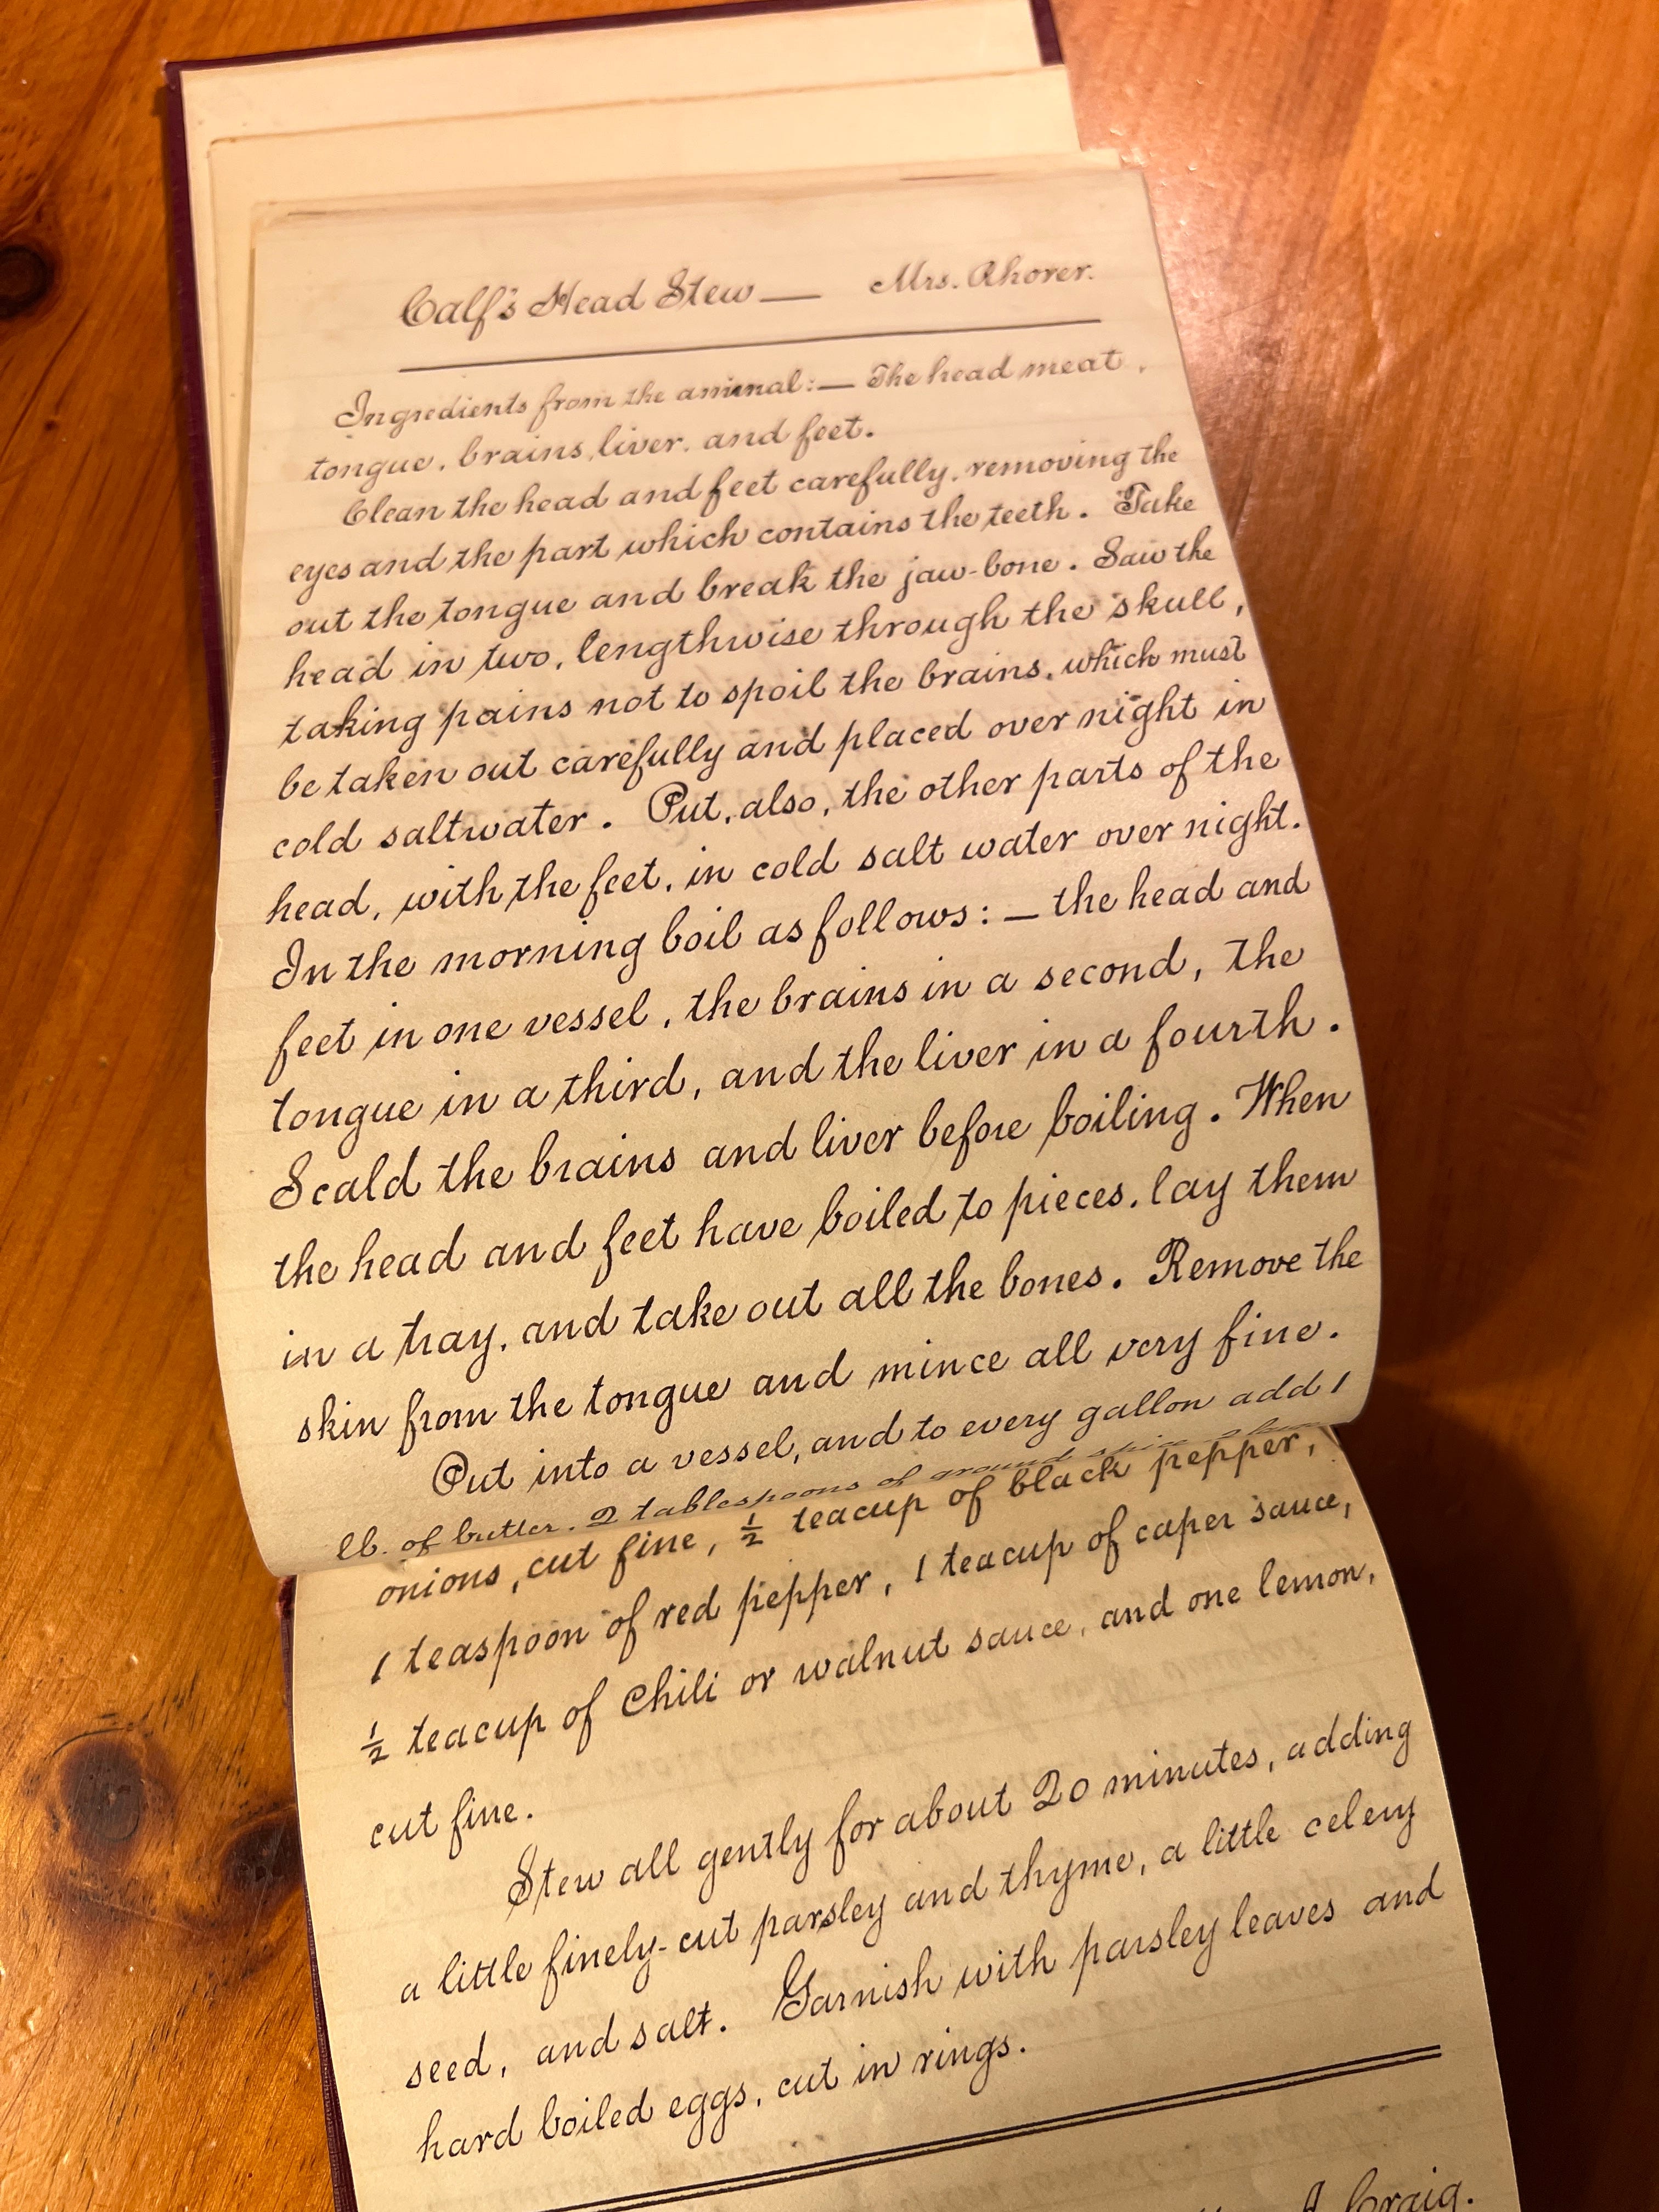 Calf's Head Stew — Mrs. Rhorer.
Ingredients from the animal:— The head meat,
tongue, brains, liver, and feet.
Clean the head and feet carefully, removing the
eyes and the part which contains the teeth. Take
out the tongue and break the jaw-bone. Saw the
head in two, lengthwise through the skull,
taking pains not to spoil the brains, which must
be taken out carefully and placed over night in
cold saltwater. Put, also, the other parts of the
head, with the feet, in cold salt water over night.
In the morning boil as follows:— the head and
feet in one vessel, the brains in a second, the
tongue in a third, and the liver in a fourth.
Scald the brains and liver before boiling. When
the head and feet have boiled to pieces, lay them
in a tray, and take out all the bones. Remove the
skin from the tongue and mince all very fine.
Put into a vessel, and to every gallon add 1
lb. of butter, 2 tablespoons of ground
onions, cut fine, ½ teacup of black pepper,
1 teaspoon of red pepper, 1 teacup of caper sauce,
½ teacup of Chili or walnut sauce, and one lemon,
cut fine.
Stew all gently for about 20 minutes, adding
a little finely-cut parsley and thyme, a little celery
seed, and salt. Garnish with parsley leaves and
hard boiled eggs, cut in rings.
Craig.